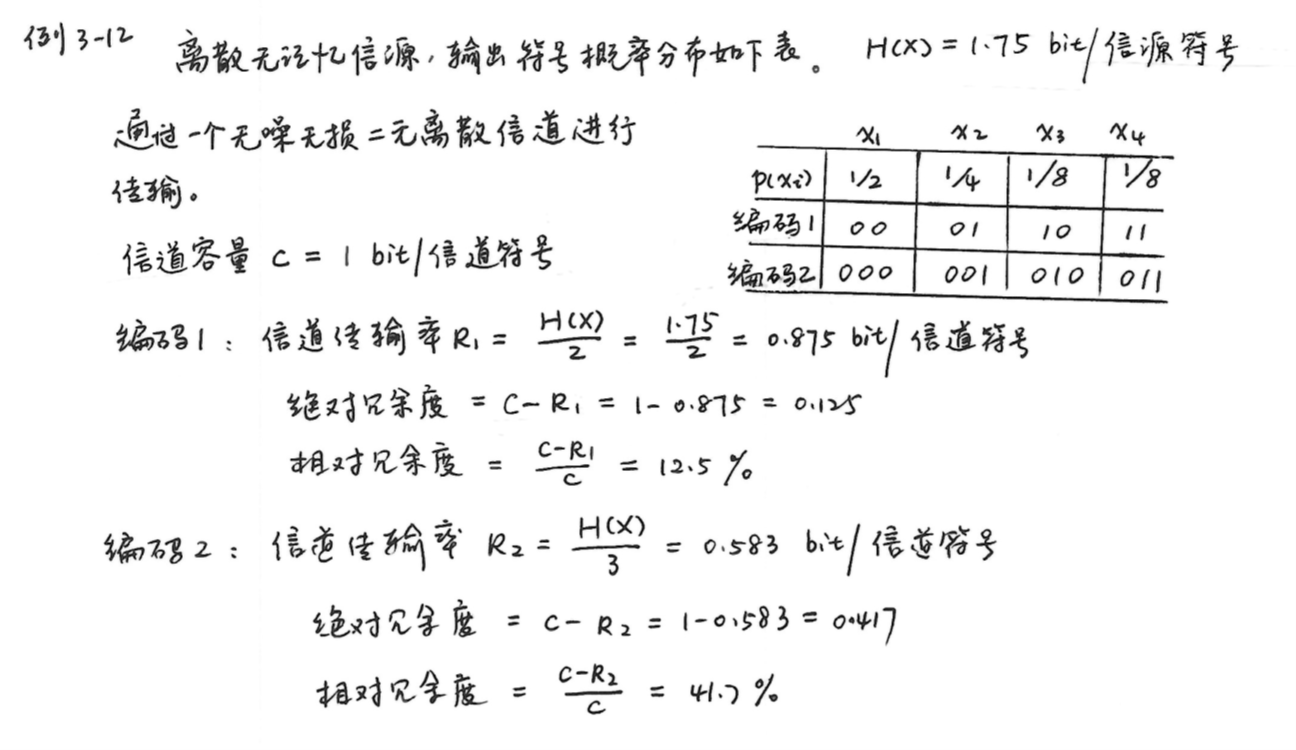 例3-12 离散无记忆信源,输出符号概率分布如下表。 H(X) = 1.75 bit/信源符号
通过一个无噪无损二元离散信道进行
传输。
信道容量 C = 1 bit/信道符号
x1 x2 x3 x4
P(xi) 1/2 1/4 1/8 1/8
编码1 00 01 10 11
编码2 000 001 010 011
编码1: 信道传输率 R1 = H(X)/2 = 1.75/2 = 0.875 bit/信道符号
绝对冗余度 = C-R1 = 1-0.875 = 0.125
相对冗余度 = C-R1/C = 12.5%
编码2: 信道传输率 R2 = H(X)/3 = 0.583 bit/信道符号
绝对冗余度 = C-R2 = 1-0.583 = 0.417
相对冗余度 = C-R2/C = 41.7%